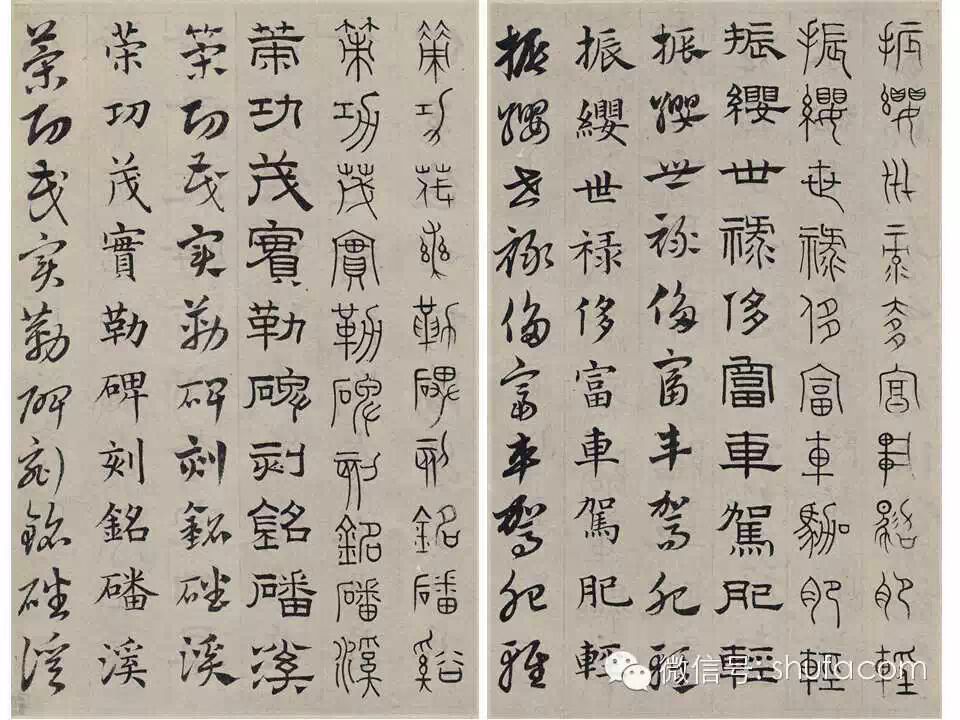 振纓世祿侈富車駕肥輕
振纓世祿侈富車駕肥輕
振纓世祿侈富車駕肥輕
振纓世祿侈富車駕肥輕
振纓世祿侈富車駕肥輕
振纓世祿侈富車駕肥輕
策功茂實勒碑刻銘磻溪
策功茂實勒碑刻銘磻溪
策功茂實勒碑刻銘磻溪
策功茂實勒碑刻銘磻溪
策功茂實勒碑刻銘磻溪
策功茂實勒碑刻銘磻溪
微信号: shufacom